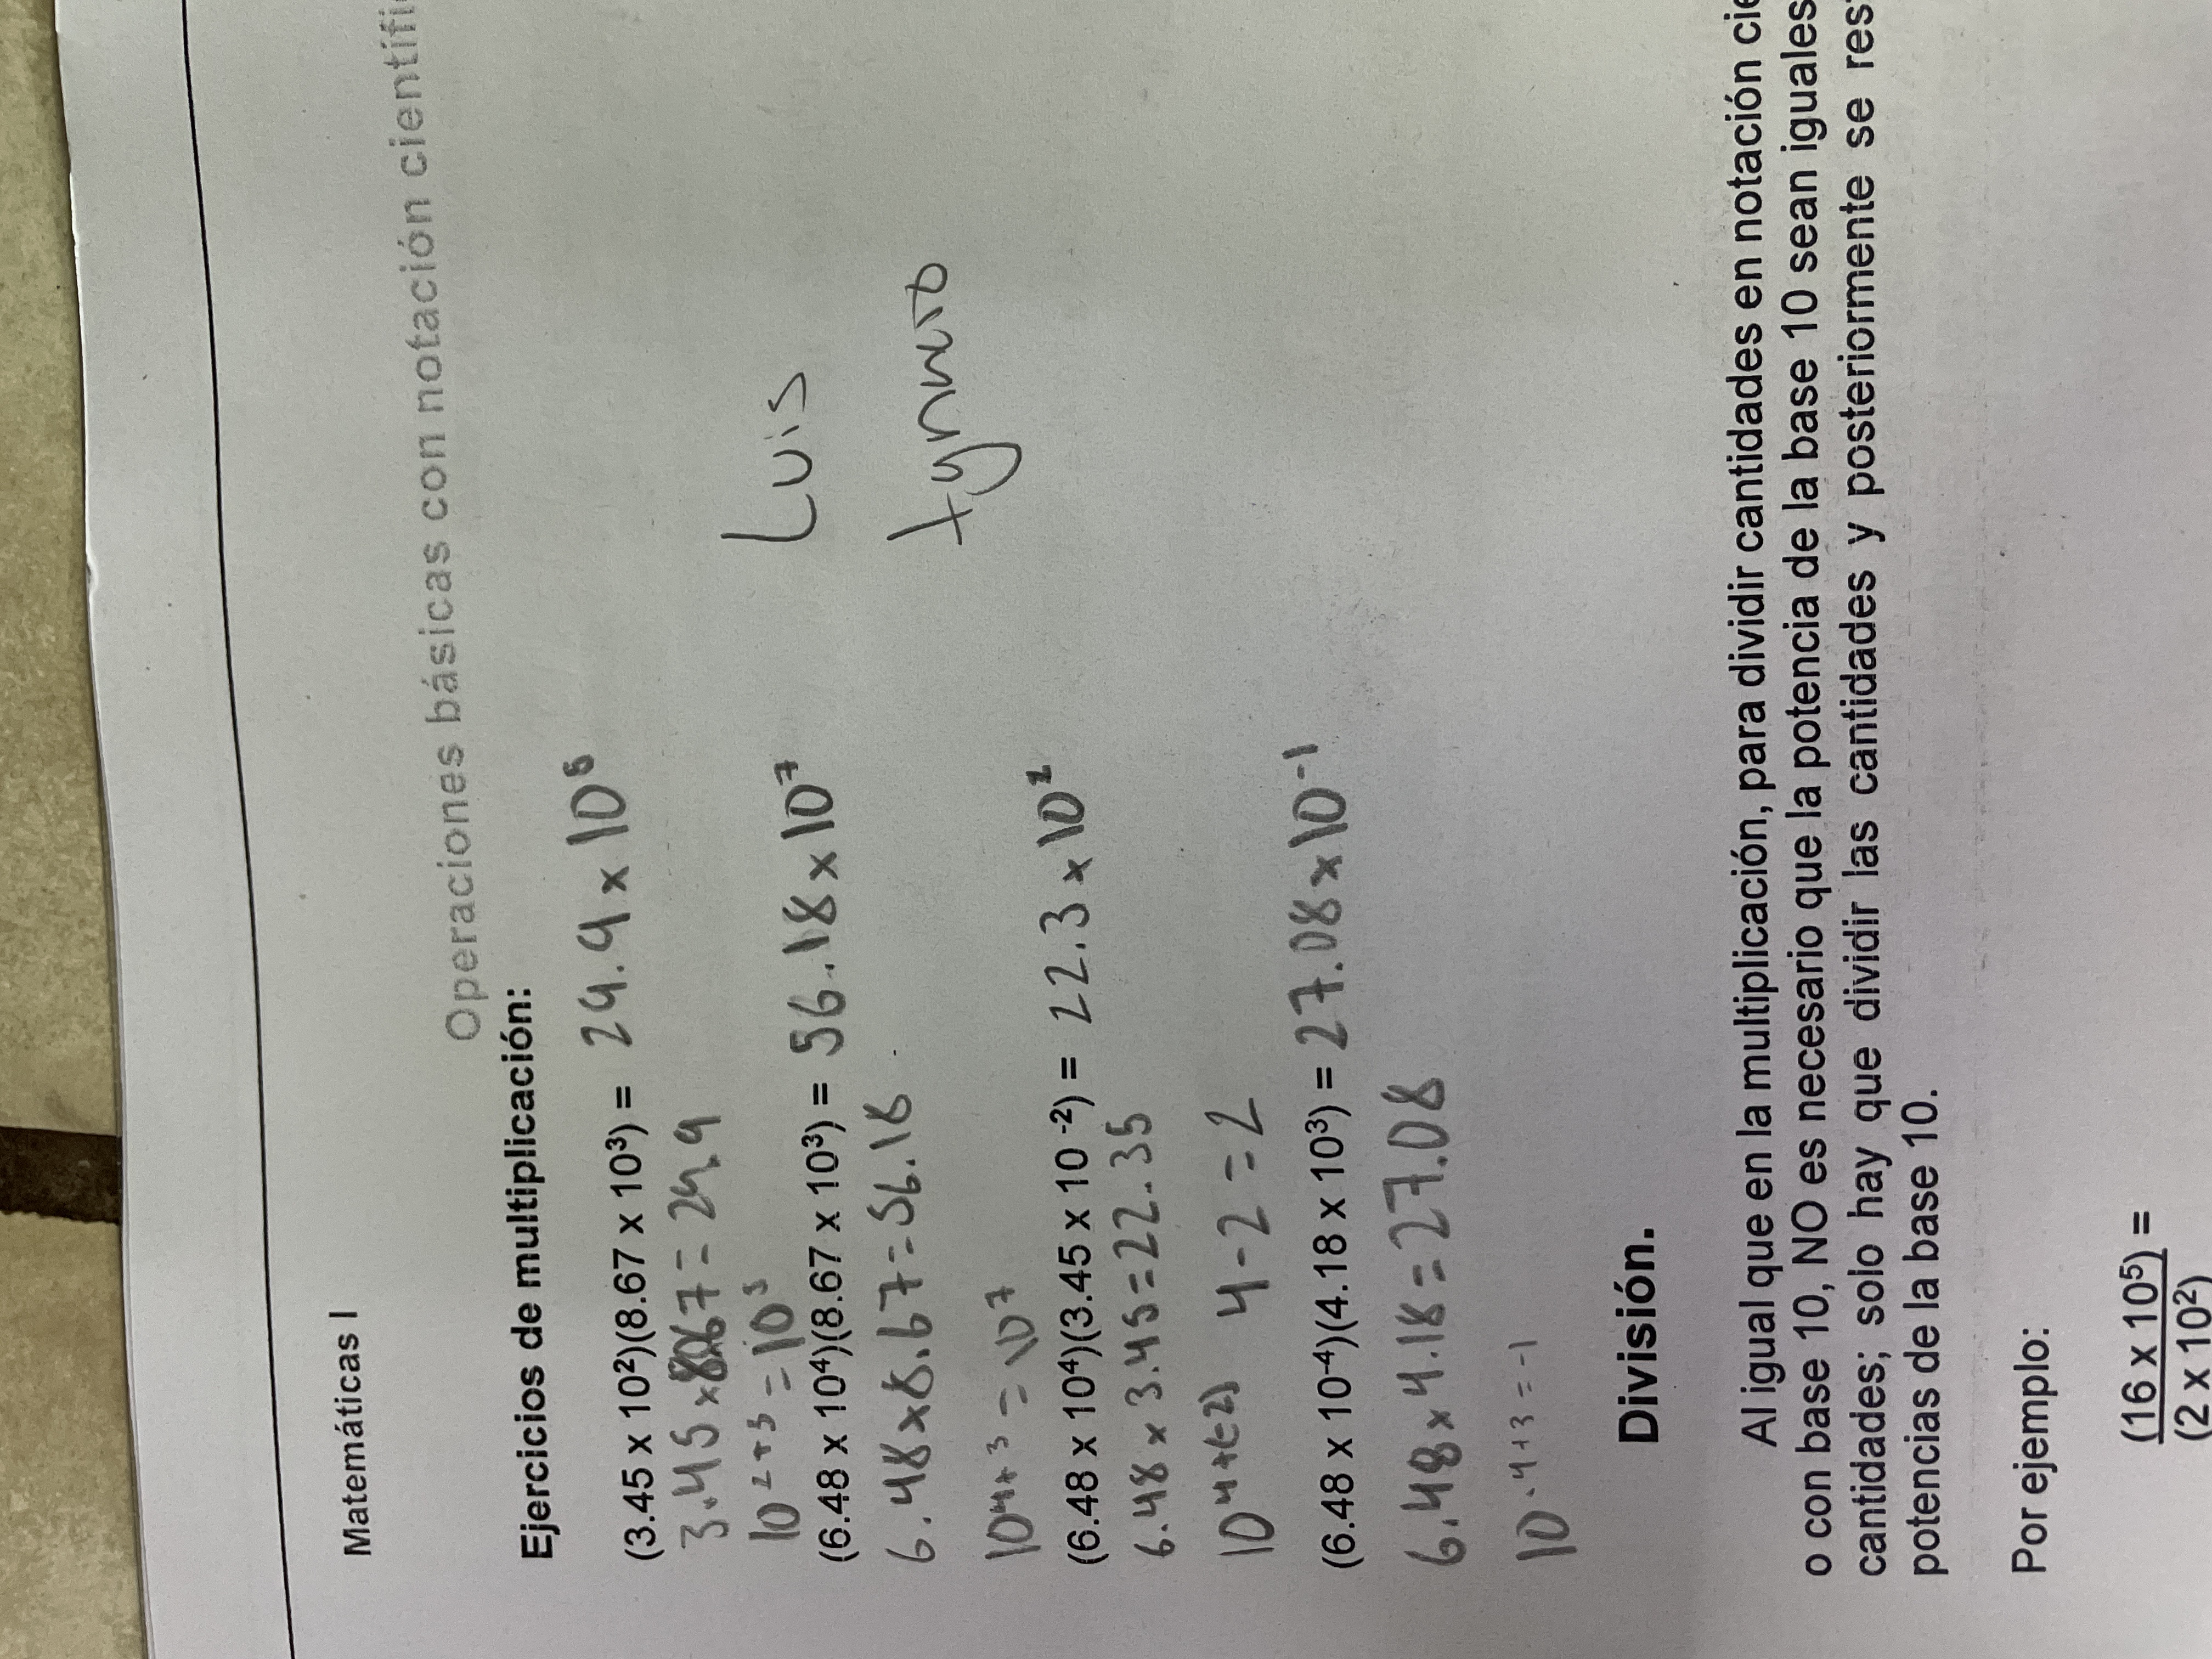 Matemáticas I
Operaciones básicas con notación científi
Ejercicios de multiplicación:
(3.45 x 10²)(8.67 x 10³) = 29.9 x 10⁵
3.45 x 8.67 = 29.9
10²⁺³ = 10⁵
(6.48 x 10⁴)(8.67 x 10³) = 56.18 x 10⁷
6.48 x 8.67 = 56.18
10⁴⁺³ = 10⁷
Luis
(6.48 x 10⁴)(3.45 x 10⁻²) = 22.3 x 10²
6.48 x 3.45 = 22.35
10⁴⁺⁽⁻²⁾ 4-2=2
(6.48 x 10⁻⁴)(4.18 x 10³) = 27.08 x 10⁻¹
6.48 x 4.18 = 27.08
10⁻⁴⁺³⁼⁻¹
División.
Al igual que en la multiplicación, para dividir cantidades en notación cie
o con base 10, NO es necesario que la potencia de la base 10 sean iguales
cantidades; solo hay que dividir las cantidades y posteriormente se res
potencias de la base 10.
Por ejemplo:
(16 x 10⁵) =
(2 x 10²)